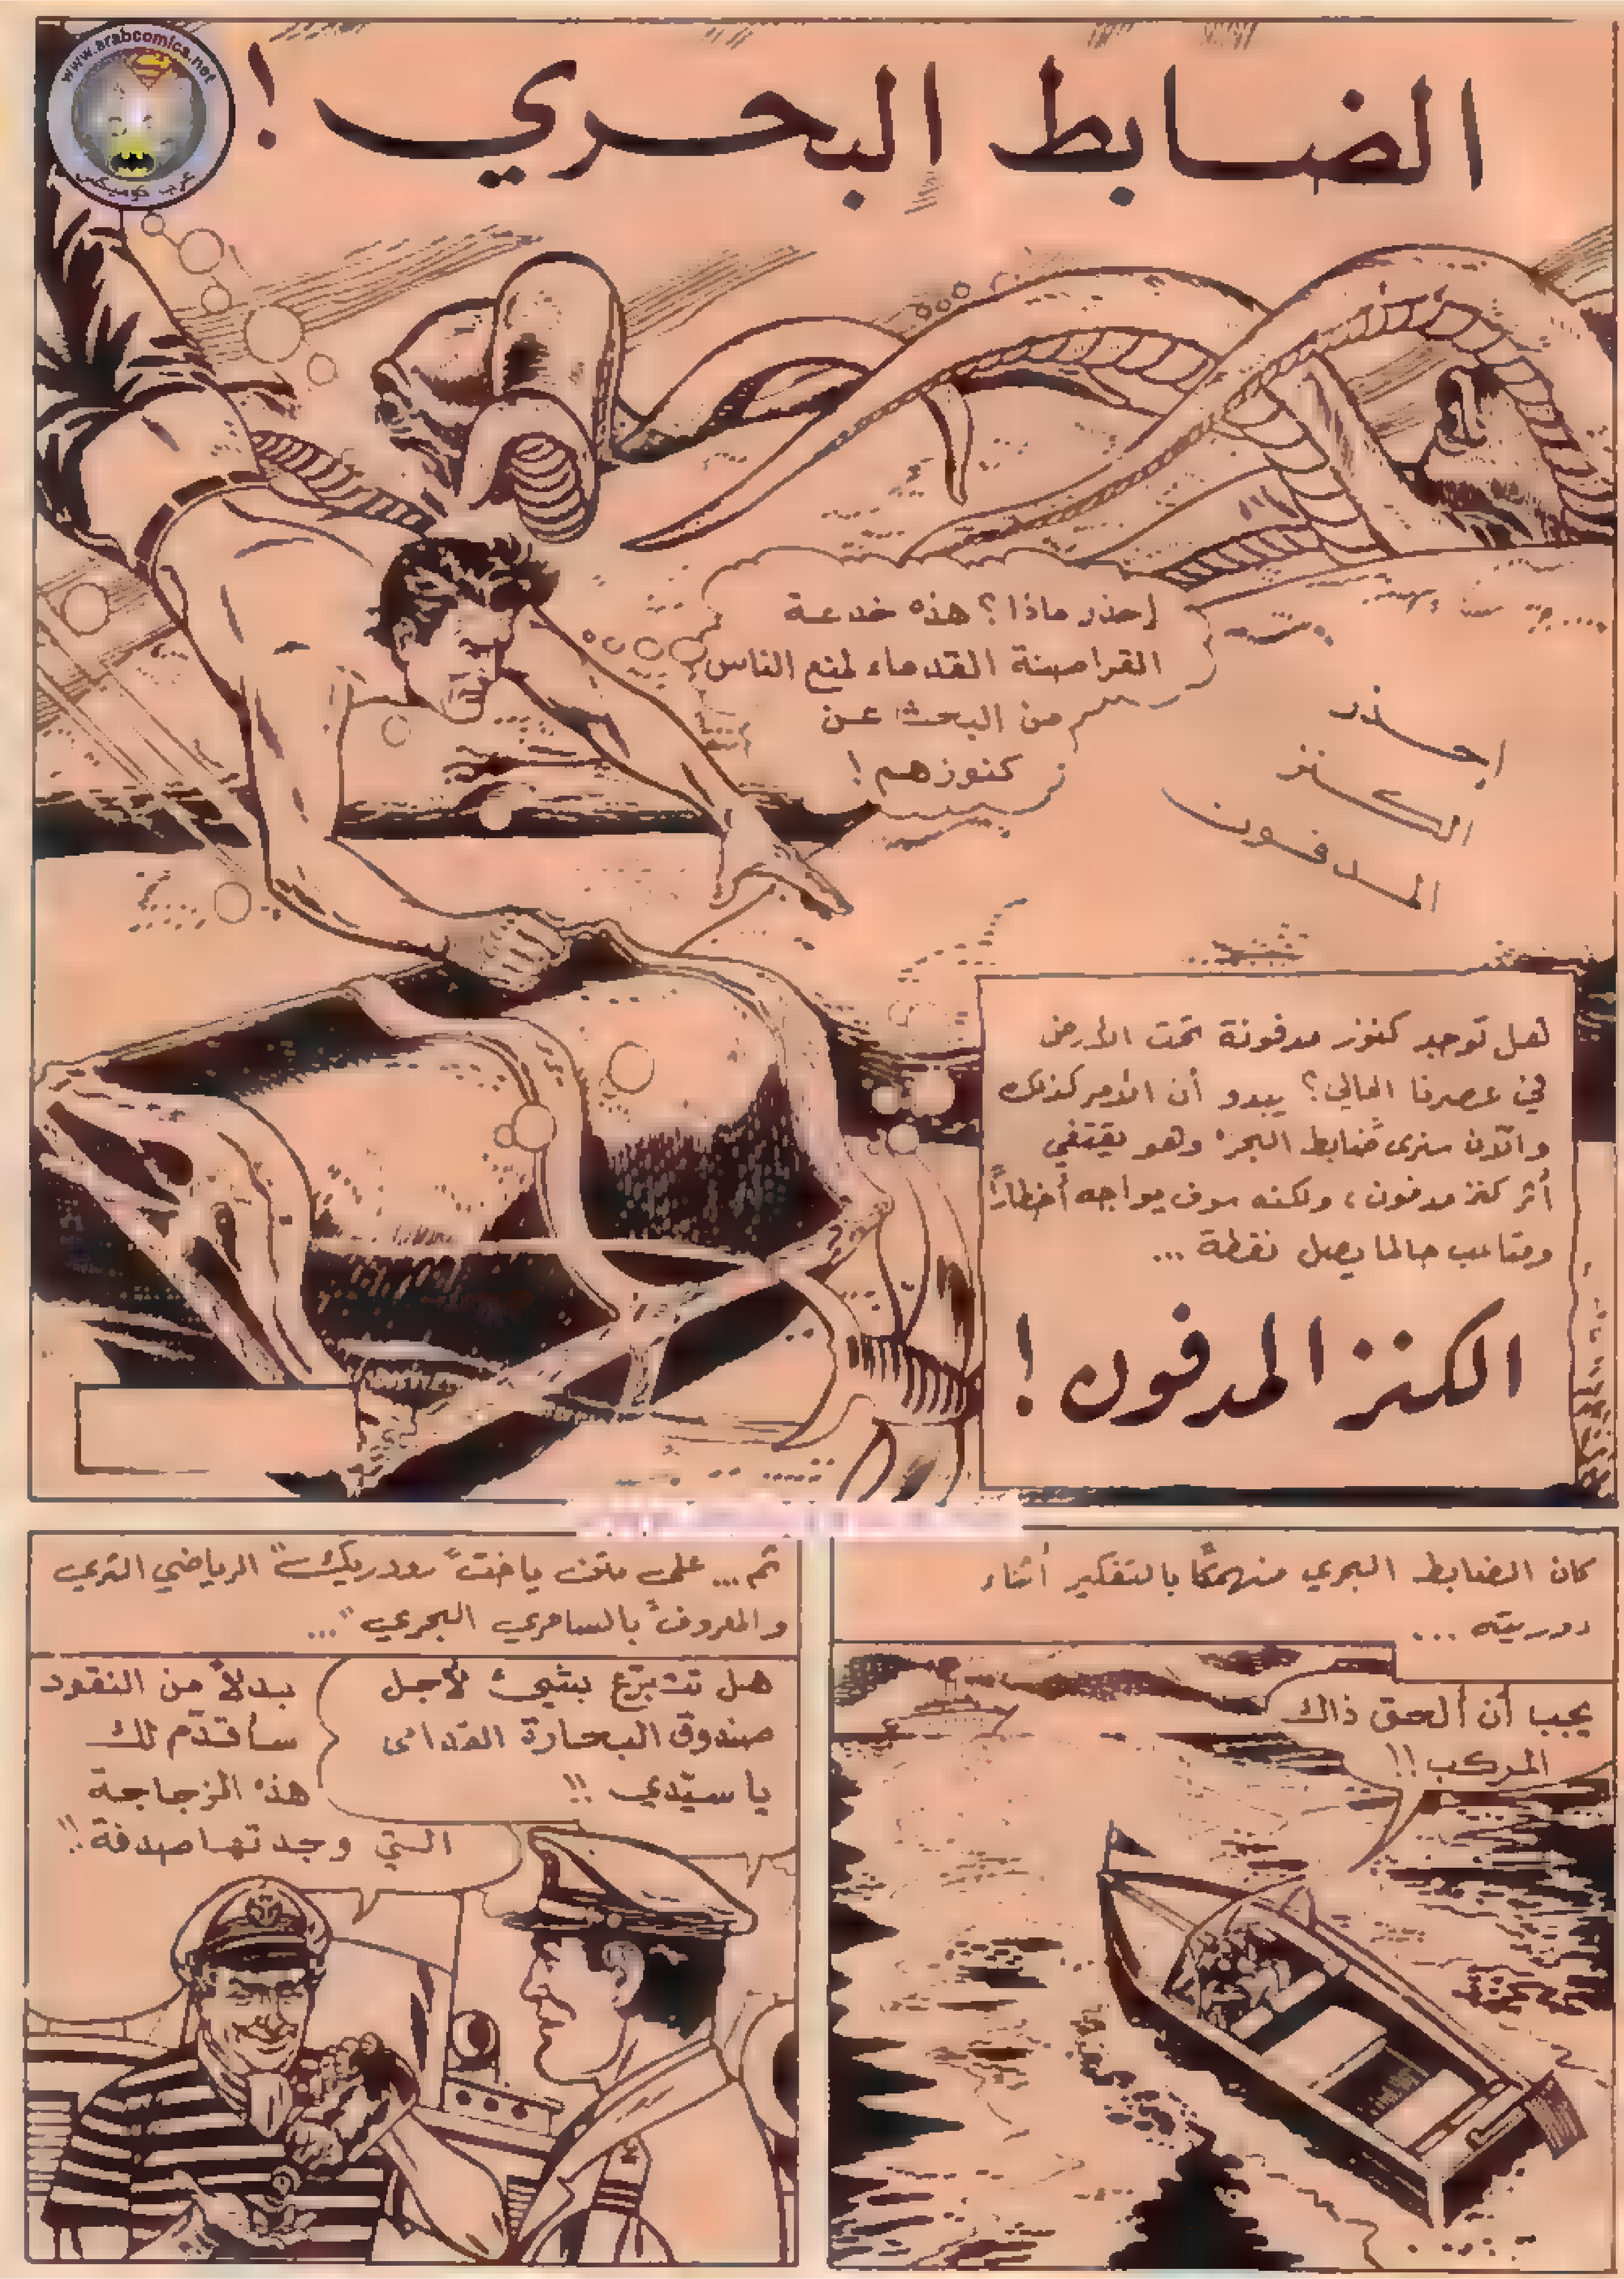 www.arabcomics.net
عرب كوميكس
الضابط البحري !
احذر ماذا؟ هذه خدعة
القراصنة القدماء لمنع الناس
من البحث عن
كنوزهم!
احذر
الكنز
المدفون
هل توجد كنوز مدفونة تحت الارض
في عصرنا الحالي؟ يبدو أن الأمر كذلك
والآن سنرى ضابط البحر وهو يقتفي
أثر كنز مدفون، ولكنه سوف يواجه أخطاراً
ومتاعب حالما يصل نقطة ...
الكنز المدفون !
كان الضابط البحري منهمكاً بالتفكير أثناء
دوريته ...
يجب أن ألحق ذاك
المركب!!
ثم ... على متن ياخت "رودريك" الرياضي الثري
والمعروف "بالساحري البحري" ...
هل تتبرّع بشيء لأجل
صندوق البحارة القدامى
يا سيّدي !!
بدلاً من النقود
سأقدّم لك
هذه الزجاجة
التي وجدتها صدفة!!